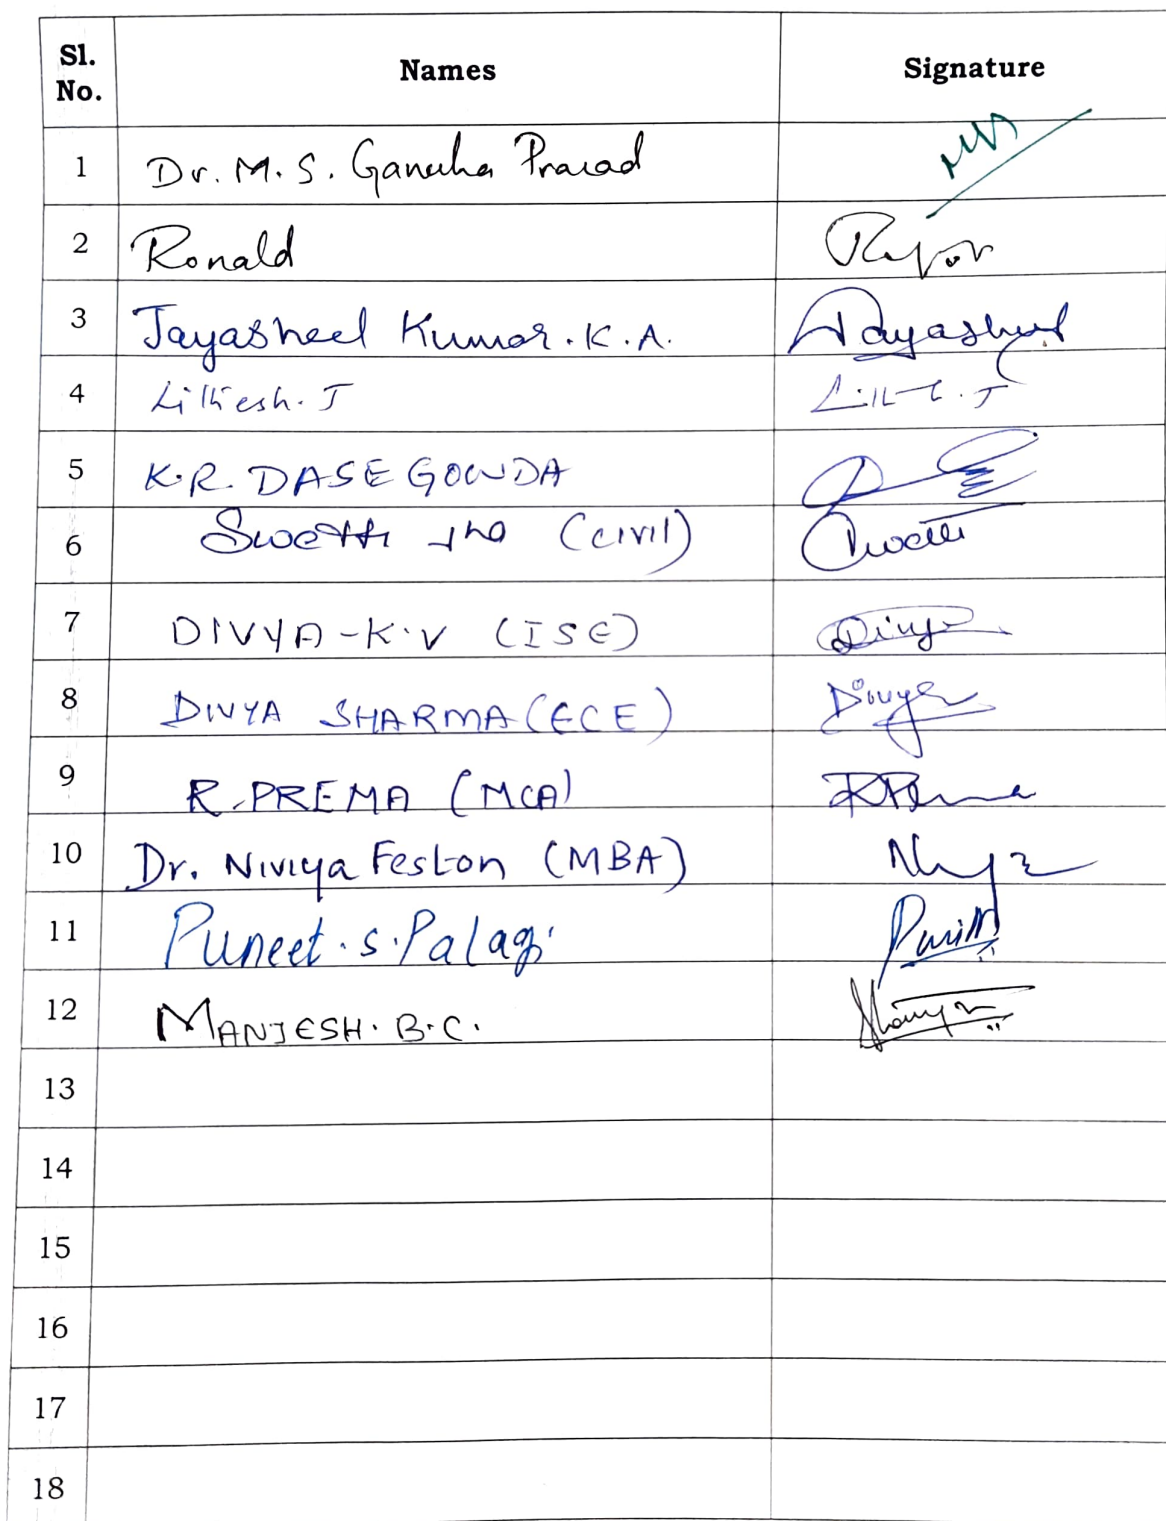 Sl. No. Names Signature
1 Dr. M. S. Ganesha Prasad
2 Ronald
3 Jayasheel Kumar. K. A. Jayasheel
4 Lithesh. J
5 K. R. DASEGOWDA
6 Swetha (CIVIL)
7 DIVYA-K.V (ISE) Divya
8 DIVYA SHARMA (ECE) Divya
9 R. PREMA (MCA)
10 Dr. Niviya Feston (MBA)
11 Puneet. S. Palagi
12 MANJESH. B.C.
13
14
15
16
17
18